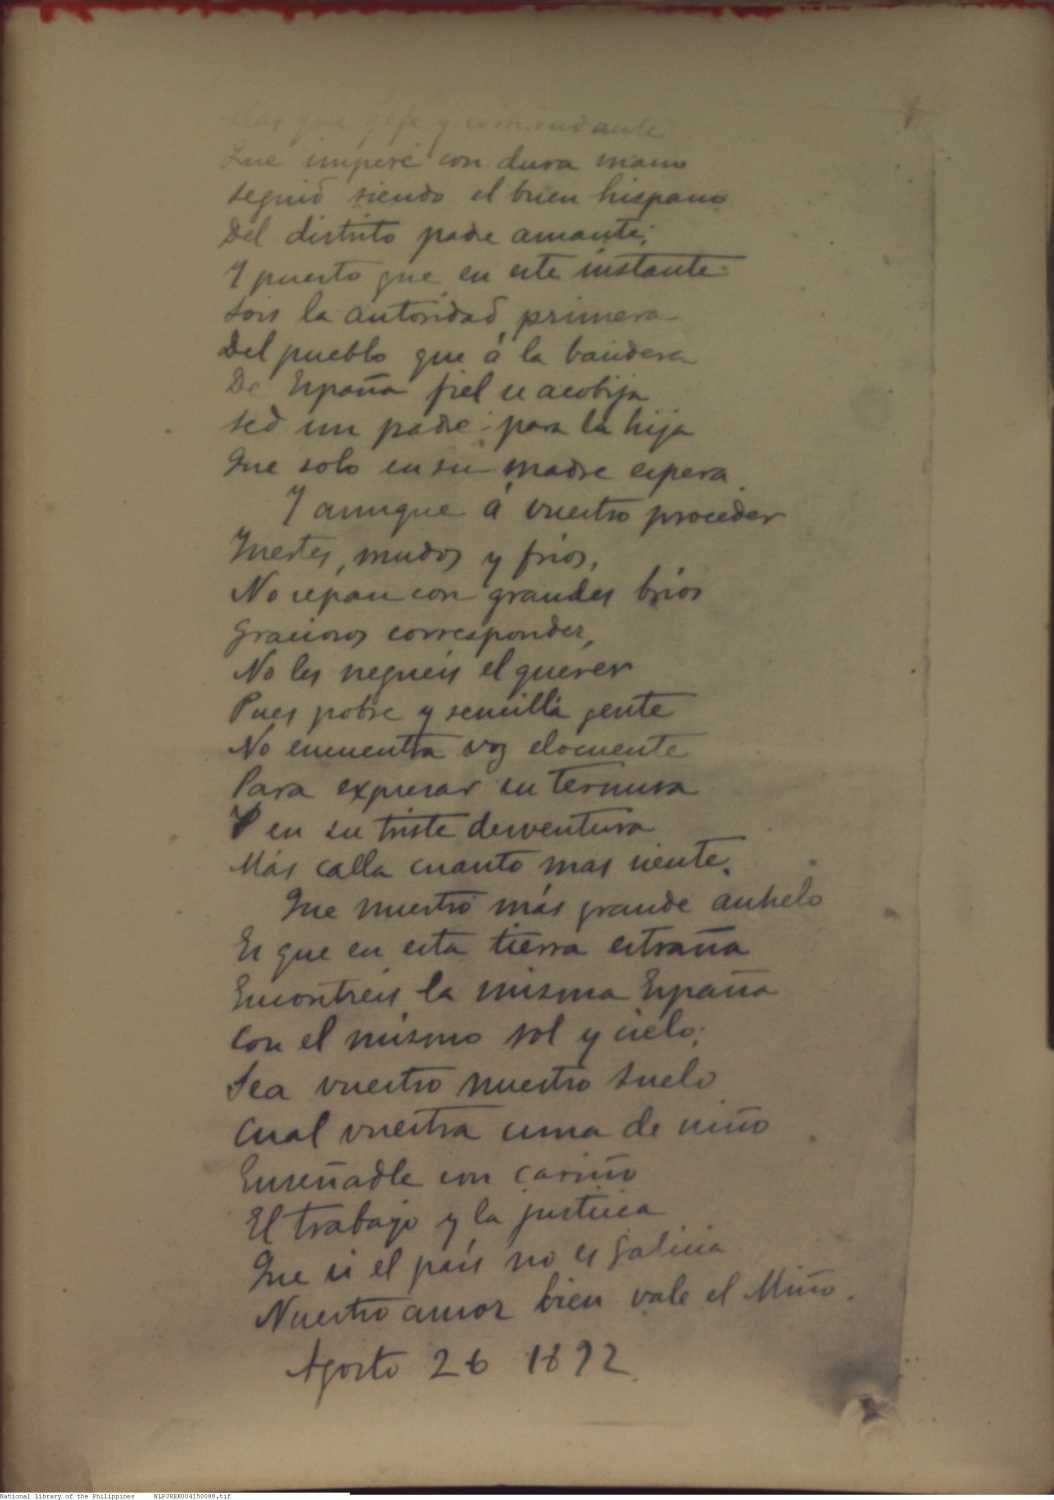 Más que gefe y comandante
Que impere con dura mano
Seguid siendo el buen hispano
Del distrito padre amante;
Y puesto que en este instante
Sois la autoridad primera
Del pueblo que á la bandera
De España fiel se acobija
Sed un padre para la hija
Que solo en su madre espera.
Y aunque á vuestro proceder
Inertes, mudos y frios,
No sepan con grandes brios
Graciosos corresponder,
No les negueis el querer
Pues pobre y sencilla gente
No encuentra voz elocuente
Para expresar su ternura
Y en su triste desventura
Más calla cuanto mas siente.
Que nuestro más grande anhelo
Es que en esta tierra estraña
Encontreis la misma España
Con el mismo sol y cielo;
Sea vuestro nuestro suelo
Cual vuestra cuna de niño
Enseñadle con cariño
El trabajo y la justicia
Que si el país no es Galicia
Nuestro amor bien vale el Miño.
Agosto 26 1892
National library of the Philippines NLPJRER004150088.tif